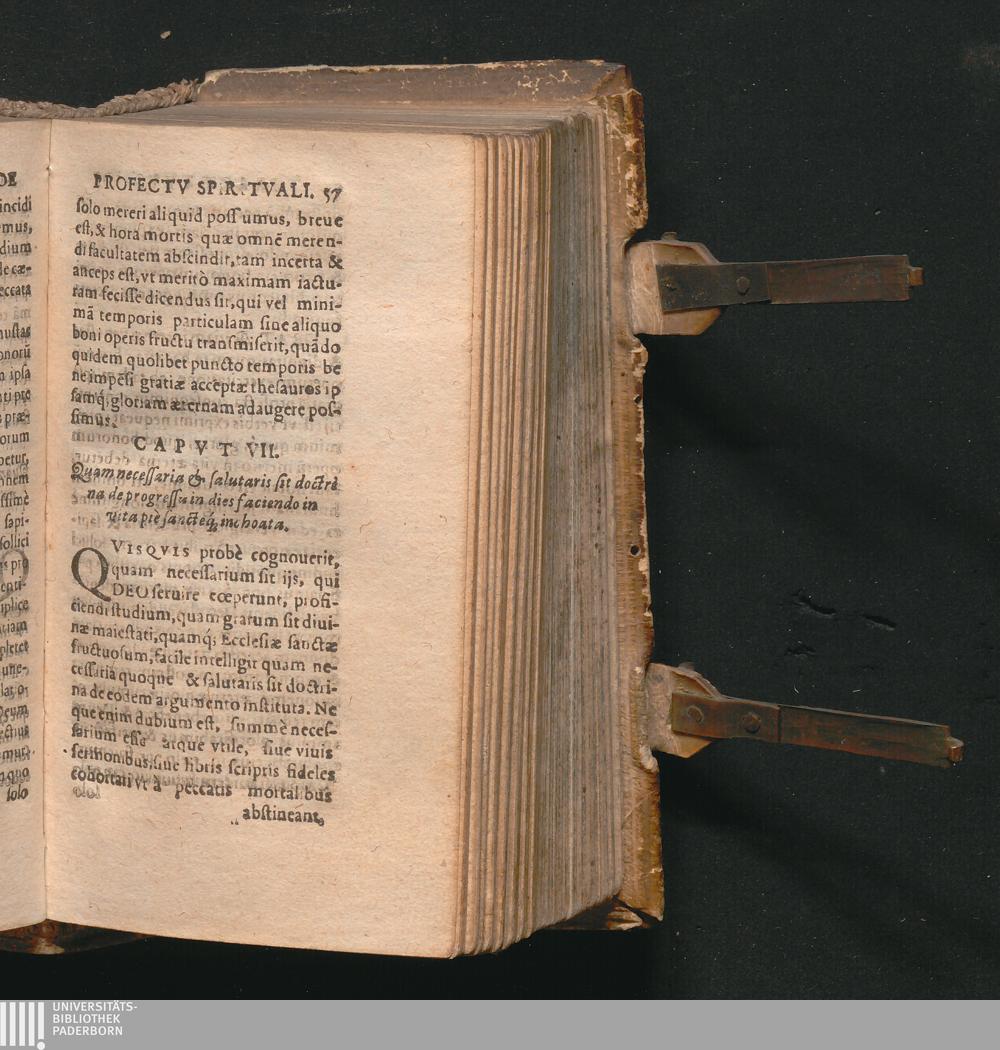 DE
incidi
mus,
dium
eccata
ipsa
orum
betur,
ssimè
sapi-
sollici
enti-
iplice
pletet
une-
solo
PROFECTV SP.R.TVALI. 57
solo mereri aliquid possumus, breue
est, & hora mortis quæ omnẽ meren-
di facultatem abscindit, tam incerta &
anceps est, vt meritò maximam iactu-
ram fecisse dicendus sit, qui vel mini-
mã temporis particulam sine aliquo
boni operis fructu transmiserit, quãdo
quidem quolibet puncto temporis be
ne impẽsi gratiæ acceptæ thesauros ip
samq́; gloriam æternam adaugere pos-
simus.
CAPVT VII.
Quam necessaria & salutaris sit doctri
na de progressu in dies faciendo in
vita piè sanctéq́; inchoata.
QVISQVIS probè cognouerit,
quam necessarium sit ijs, qui
DEO seruire cœperunt, profi-
ciendi studium, quam gratum sit diui-
næ maiestati, quamq́; Ecclesiæ sanctæ
fructuosum, facile intelligit quam ne-
cessaria quoque & salutaris sit doctri-
na de eodem argumento instituta. Ne
que enim dubium est, summè neces-
sarium esse atque vtile, siue viuis
sermonibus, siue libris scriptis fideles
cohortari vt à peccatis mortalibus
abstineant,
UNIVERSITÄTS-
BIBLIOTHEK
PADERBORN